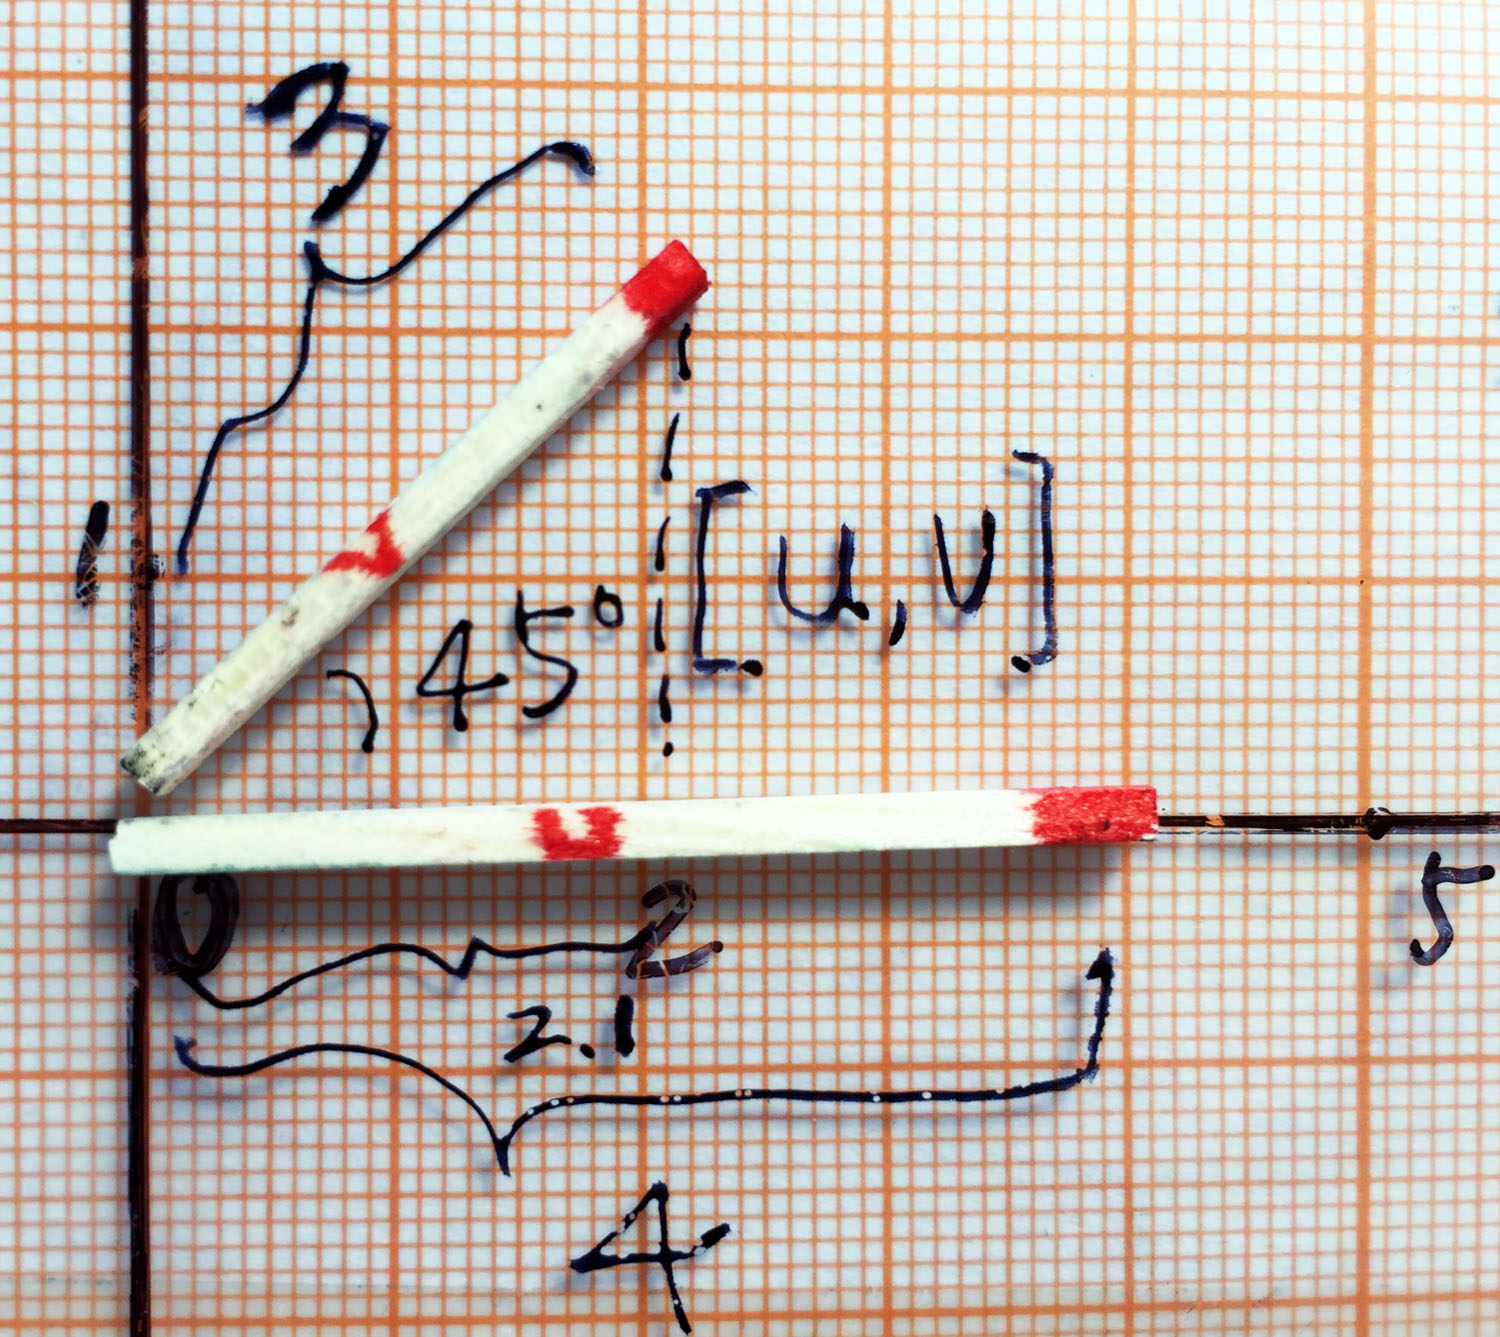 3
v
1
45°
[u, v]
u
0
2
5
2.1
4